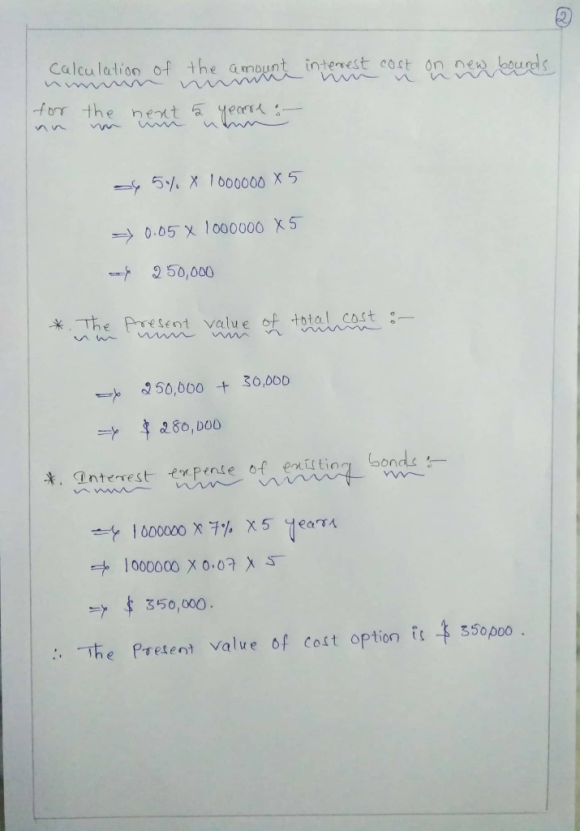 2
Calculation of the amount interest cost on new bounds
for the next 5 years :-
⇒ 5% X 1000000 X 5
⇒ 0.05 X 1000000 X 5
⇒ 250,000
*. The Present value of total cost :-
⇒ 250,000 + 30,000
⇒ $ 280,000
*. Interest expense of existing bonds :-
⇒ 1000000 X 7% X 5 years
⇒ 1000000 X 0.07 X 5
⇒ $ 350,000.
∴ The Present value of cost option is $ 350,000.